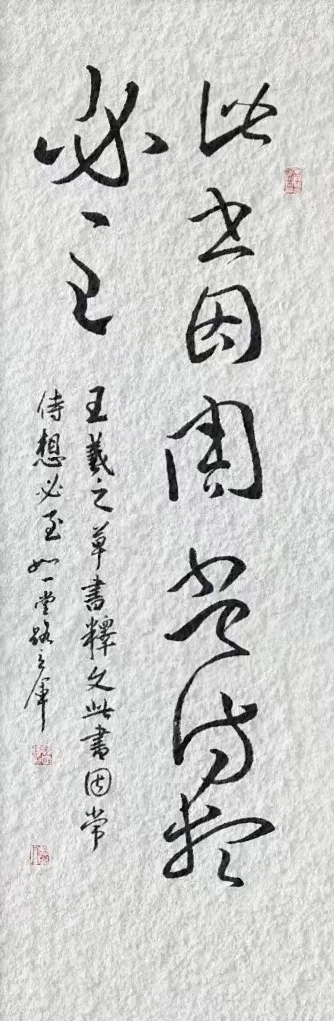 此書因周常侍想
必至
王羲之草書釋文此書因常
侍想必至如一堂路軍